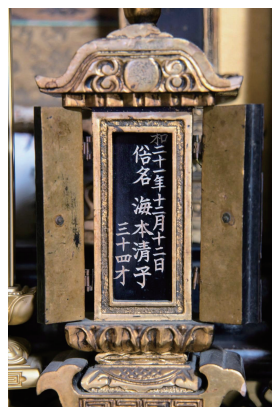 和二十一年十二月十二日
俗名 海本清子
三十四才